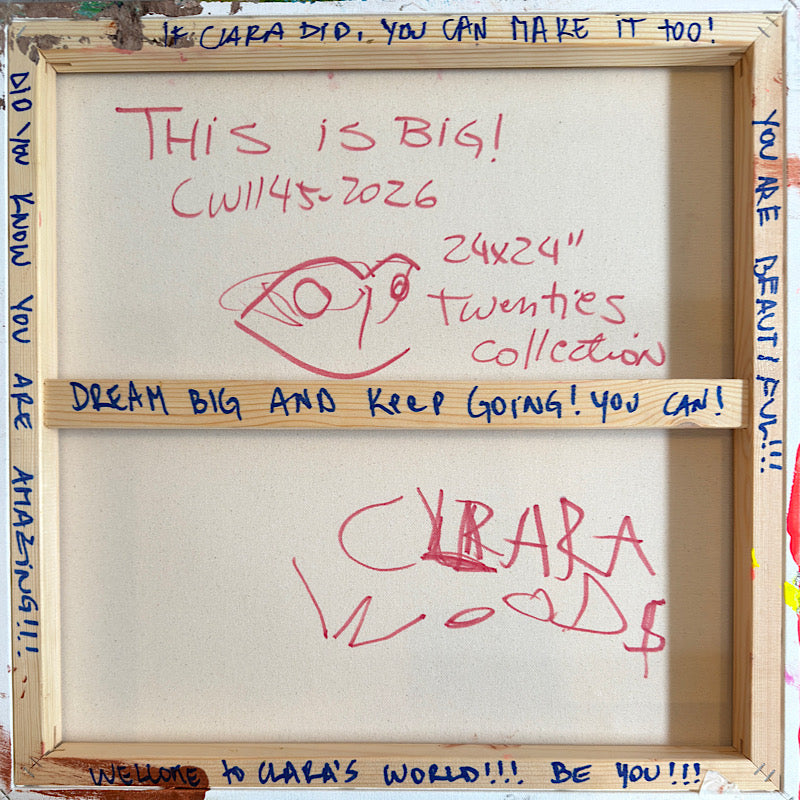 If CLARA DID, YOU CAN MAKE IT too!
DID YOU KNOW YOU ARE AMAZING!!!
YOU ARE BEAUTIFUL!!!
THIS IS BIG!
CW1145-2026
24x24"
Twenties
collection
DREAM BIG AND KEEP GOING! YOU CAN!
CLARA
WOOD$
WELCOME to CLARA'S WORLD!!! BE YOU!!!